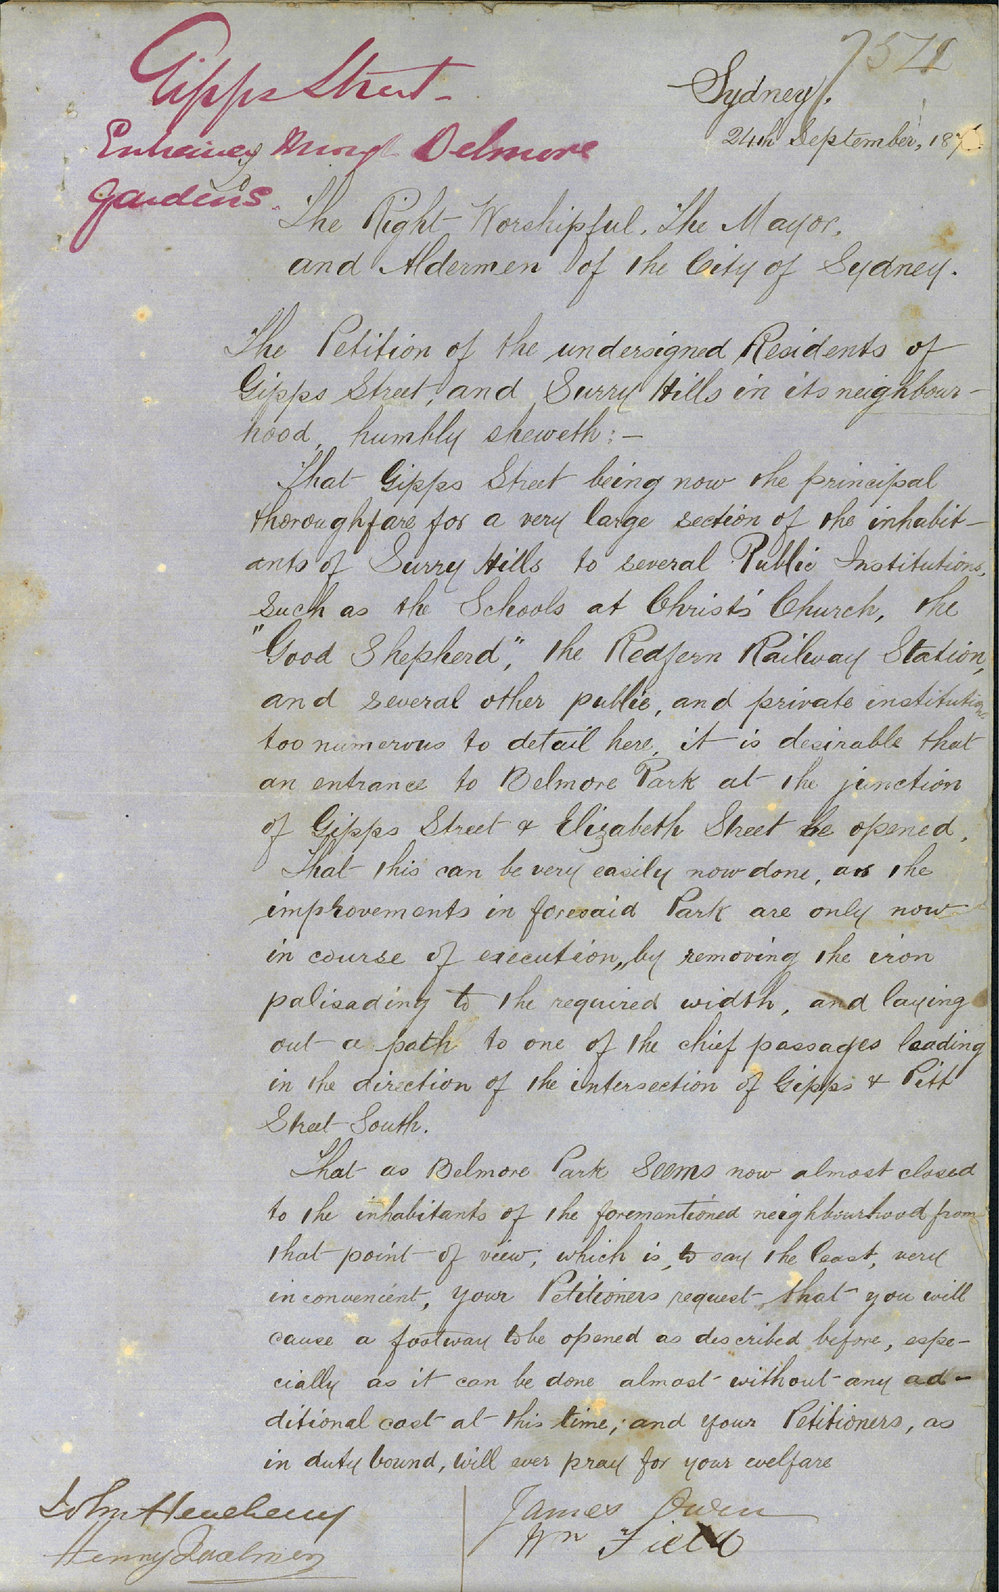 Gipps Street -
Belmore
Gardens.
Sydney.
24th September, 187
The Right Worshipful, The Mayor,
and Aldermen of the City of Sydney.
The Petition of the undersigned Residents of
Gipps Street, and Surry Hills in its neighbour-
hood, humbly sheweth: -
That Gipps Street being now the principal
thoroughfare for a very large section of the inhabit-
ants of Surry Hills to several Public Institutions,
such as the Schools at Christ's Church, the
"Good Shepherd", the Redfern Railway Station,
and several other public, and private institutions
too numerous to detail here, it is desirable that
an entrance to Belmore Park at the junction
of Gipps Street & Elizabeth Street be opened.
That this can be very easily now done, as the
improvements in foresaid Park are only now
in course of execution, by removing the iron
palisading to the required width, and laying
out a path to one of the chief passages leading
in the direction of the intersection of Gipps & Pitt
Street South.
That as Belmore Park seems now almost closed
to the inhabitants of the forementioned neighbourhood from
that point of view, which is, to say the least, very
inconvenient, your Petitioners request that you will
cause a footway to be opened as described before, espe-
cially as it can be done almost without any ad-
ditional cost at this time; and your Petitioners, as
in duty bound, will ever pray for your welfare
John
James Owen
Henry
Wm Field